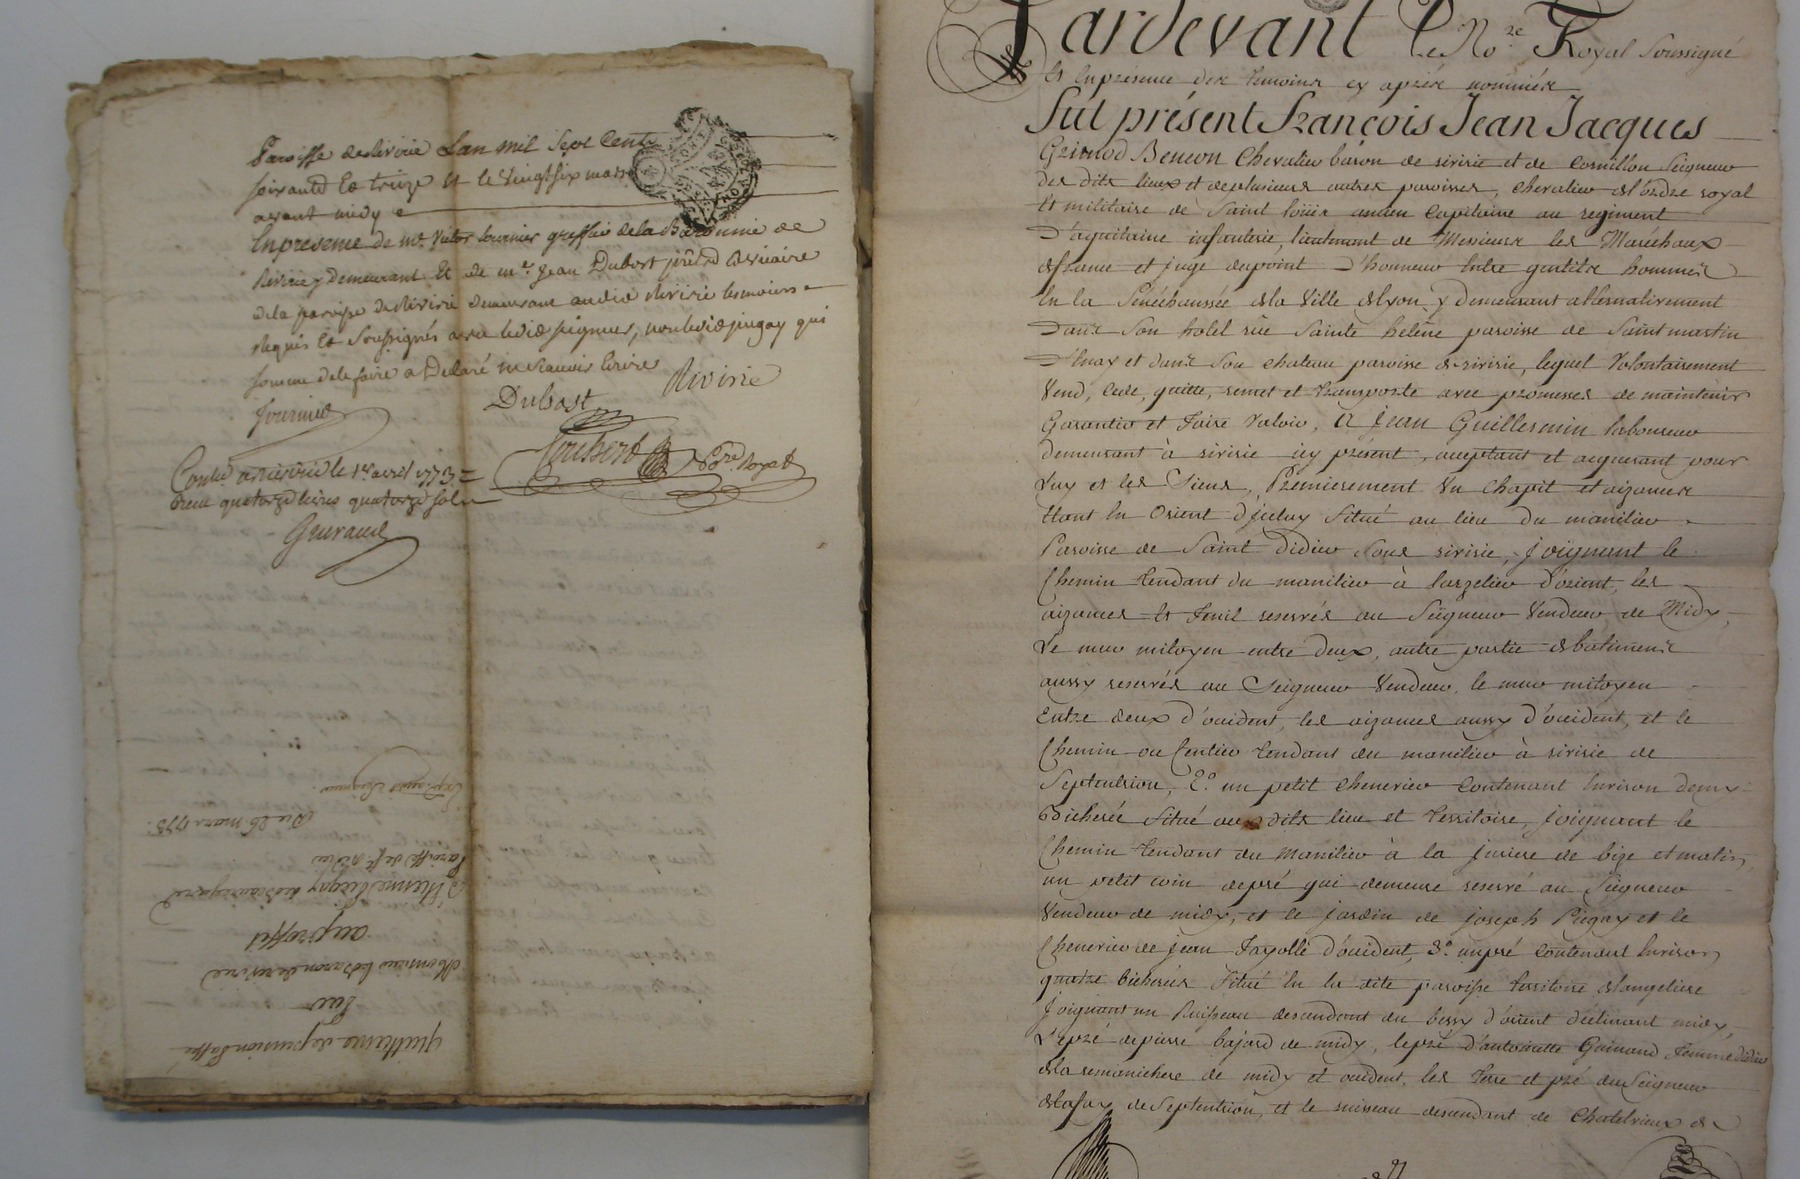 Paroisse de Riverie Lan mil Sept Cents
soixante et treize et le vingt six mars
avant midy
En presence de me Victor fournier greffier de la Baronnie de
Riverie y Demeurant Et de me Jean Dubost prêtre vicaire
de la paroisse de Riverie demeurant audit Riverie temoins
Requis Et Soussignés avec ledit seigneur, non ledit pingay qui
somme de le faire a Declaré ne Scavoir Ecrire
Riverie
Dubost
fournier
Joubert Nore Royal
Conllé a riverie le 1er avril 1773
Reçu quatorze livres quatorze sols
Guiraud
quittance de pension passée
Par
Monsieur le Baron de riverie
au proffit
d'Etienne
paroisse de st didier
Du 26 mars 1773.
Pardevant Le No.re Royal Soussigné
Et En présence des temoins cy après nommés
Fut présent François Jean Jacques
Grimod Beneon Chevalier baron de riririe et de Cornillon Seigneur
des dits lieux et de plusieurs autres paroisses, chevalier de l'ordre royal
Et militaire de Saint loüis ancien Capitaine au regiment
D'aquitaine infanterie, lieutenant de Messieurs les Maréchaux
de france et juge du point D'honneur Entre gentils hommes
En la Sénéchaussée de la Ville de lyon y demeurant alternativement
Dans Son hotel rüe Sainte hélène paroisse de Saint martin
D'Enay et dans Son chateau paroisse de riririe, lequel Volontairement
Vend, Cede, quitte, remet et transporte avec promesses de maintenir
Garantir et Faire valoir, A Jean Guillermin laboureur
demeurant à riririe icy présent, acceptant et acquerant pour
Luy et les Siens, Premierement Un Chapit et aizances
Etant En Orient D'iceluy Situé au lieu du manilier
Paroisse de Saint Didier Sous riririe, joignant le
Chemin tendant du manilier à largelier d'orient, les
aizances Et Fenil reservés au Seigneur Vendeur de Midy,
Le mur mitoyen entre deux, autre partie de batiments
aussy reservés au Seigneur Vendeur, le mur mitoyen
Entre deux d'occident, les aizances aussy d'occident, et le
Chemin ou Sentier tendant du manilier à riririe de
Septentrion, 2.° un petit chenevier Contenant Environ deux
Bicherées Situé aux dits lieu et territoire, joignant le
Chemin tendant du Manilier à la de bize et matin,
un petit coin de pré qui demeure reservé au Seigneur
Vendeur de midy, et le jardin de joseph Piegay et le
Chenevier de jean Fayolle d'occident, 3.° un pré Contenant Environ
quatre bicherées Situé En la dite paroisse territoire de langeliere
joignant un Ruisseau descendant du bessy d'orient déclinant midy,
L'Epré de pierre bajard de midy, le pré d'antoinette Guinand Femme didier
de la remonichere de midy et occident, les terre et pré du Seigneur
de lafay de Septentrion, et le ruisseau descendant de Chatelvieux de